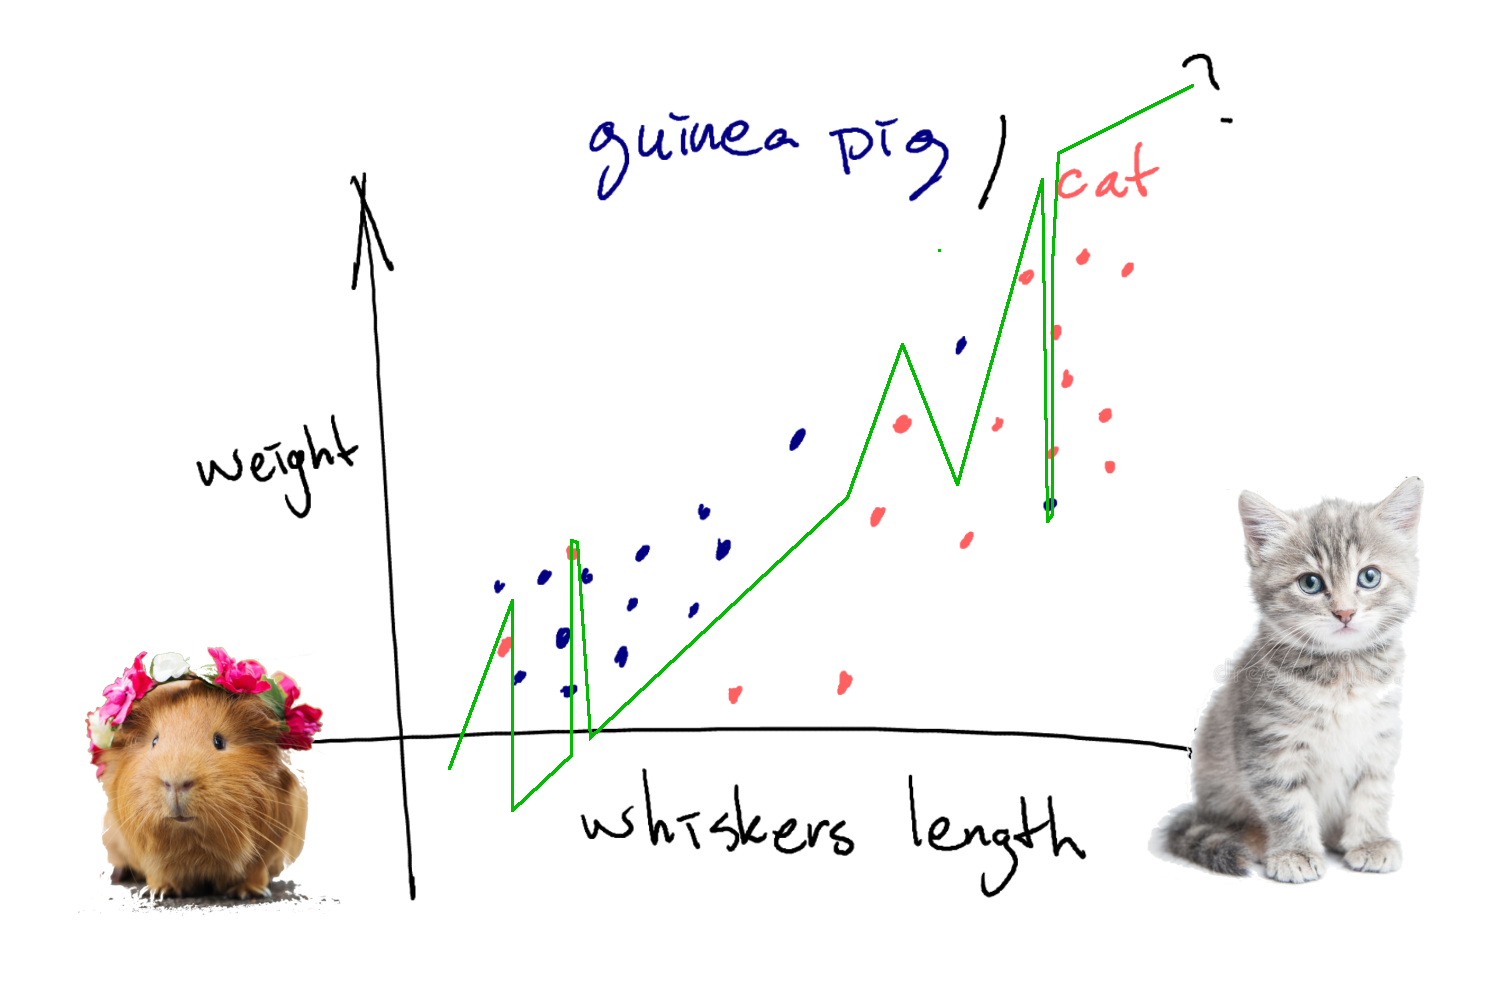 guinea pig / cat ?
weight
whiskers length